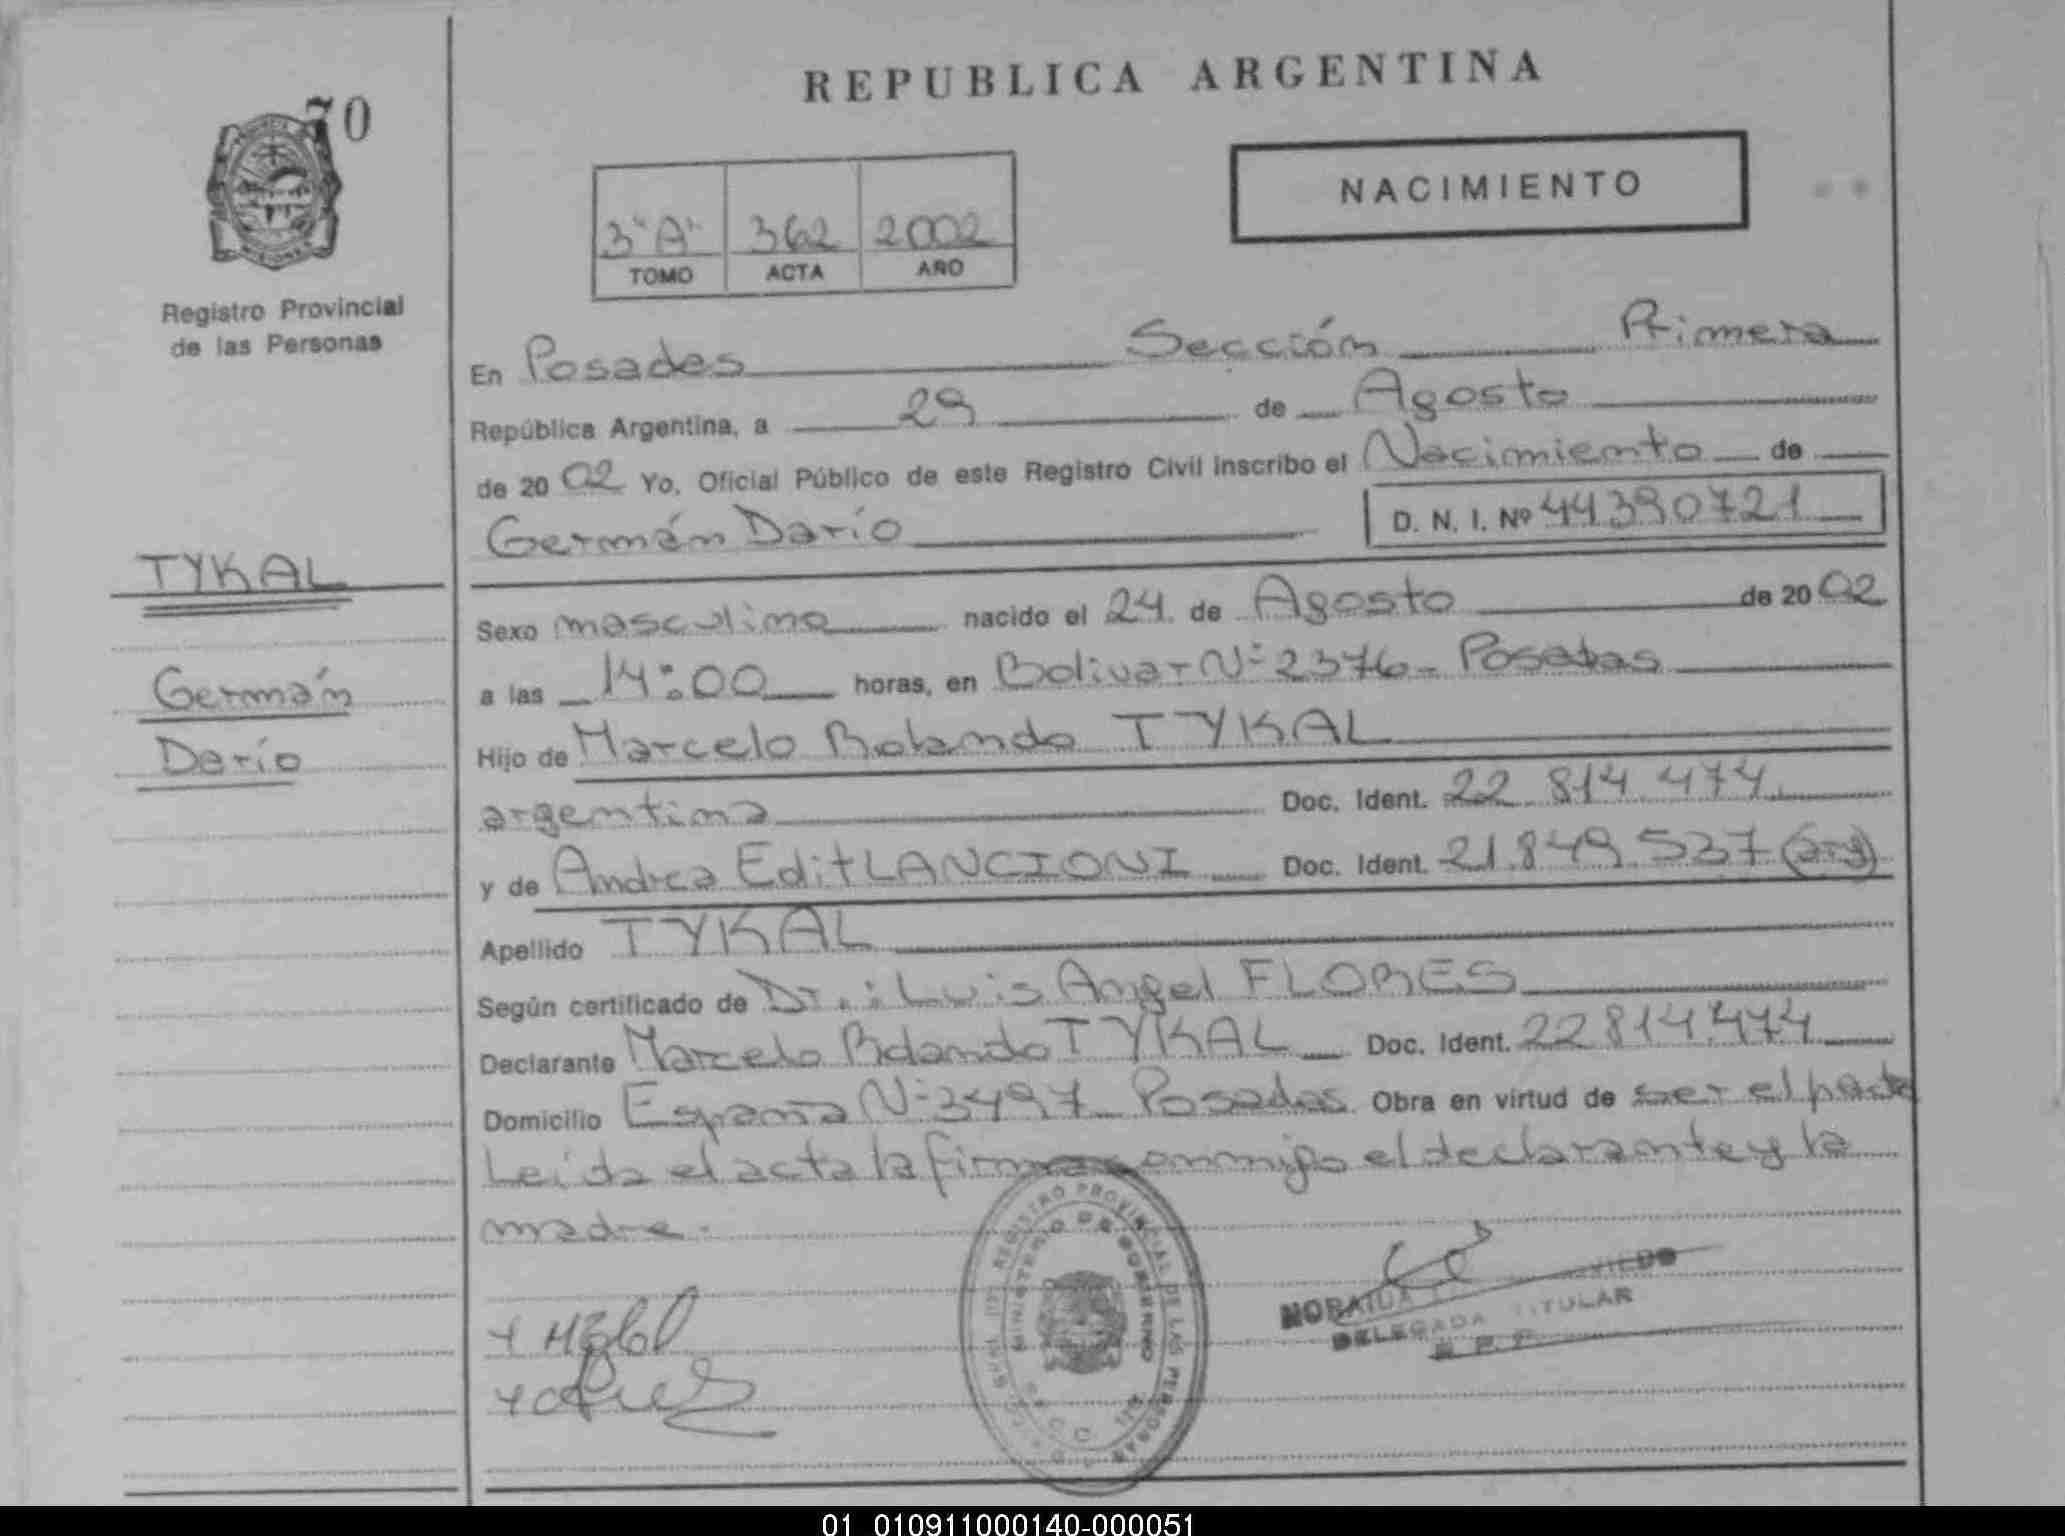 70
REPUBLICA ARGENTINA
NACIMIENTO
3 "A" 362 2002
TOMO ACTA AÑO
Registro Provincial
de las Personas
TYKAL
Germán
Darío
En Posadas Sección Primera
República Argentina, a 29 de Agosto
de 2002 Yo, Oficial Público de este Registro Civil inscribo el Nacimiento de
Germán Darío D. N. I. Nº 44390721
Sexo masculino nacido el 24 de Agosto de 2002
a las 14:00 horas, en Bolivar Nº 2376 - Posadas
Hijo de Marcelo Rolando TYKAL
argentina Doc. Ident. 22 814 474
y de Andrea Edit LANCIONI Doc. Ident. 21.849.537 (arg)
Apellido TYKAL
Según certificado de Dr.: Luis Angel FLORES
Declarante Marcelo Rolando TYKAL Doc. Ident. 22814474
Domicilio España Nº 3497 Posadas Obra en virtud de ser el padre
Leída el acta la firman conmigo el declarante y la
madre.
REGISTRO PROVINCIAL DE LAS PERSONAS
MINISTERIO DE GOBIERNO
NORAIDA
DELEGADA TITULAR
01 010911000140-000051